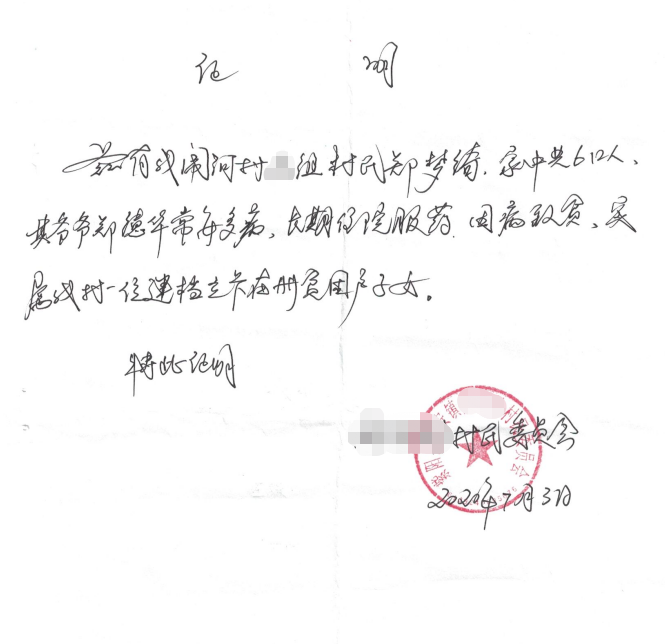 证 明
兹有我闹河村 组村民郑梦绮.家中共6口人,
其爷爷郑德华常年多病、长期住院服药.因病致贫、实
属我村一位建档立卡在册贫困户子女。
特此证明
村民委员会
2020年7月3日